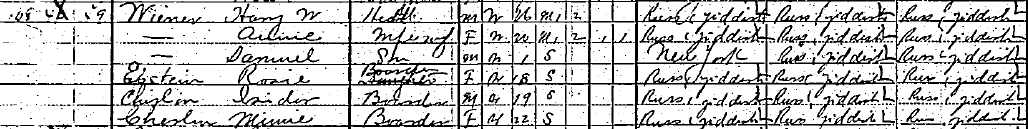 59 Wiener Harry W Head M W 26 M 2 Russ, Yiddish Russ, Yiddish Russ, Yiddish
— Annie Wife F W 20 M 2 1 1 Russ, Yiddish Russ, Yiddish Russ, Yiddish
— Samuel Son M W 1 S New York Russ, Yiddish Russ, Yiddish
Epstein Rosie Boarder F W 18 S Russ, Yiddish Russ, Yiddish Russ, Yiddish
Isidor Boarder M W 19 S Russ, Yiddish Russ, Yiddish Russ, Yiddish
Minnie Boarder F W 22 S Russ, Yiddish Russ, Yiddish Russ, Yiddish